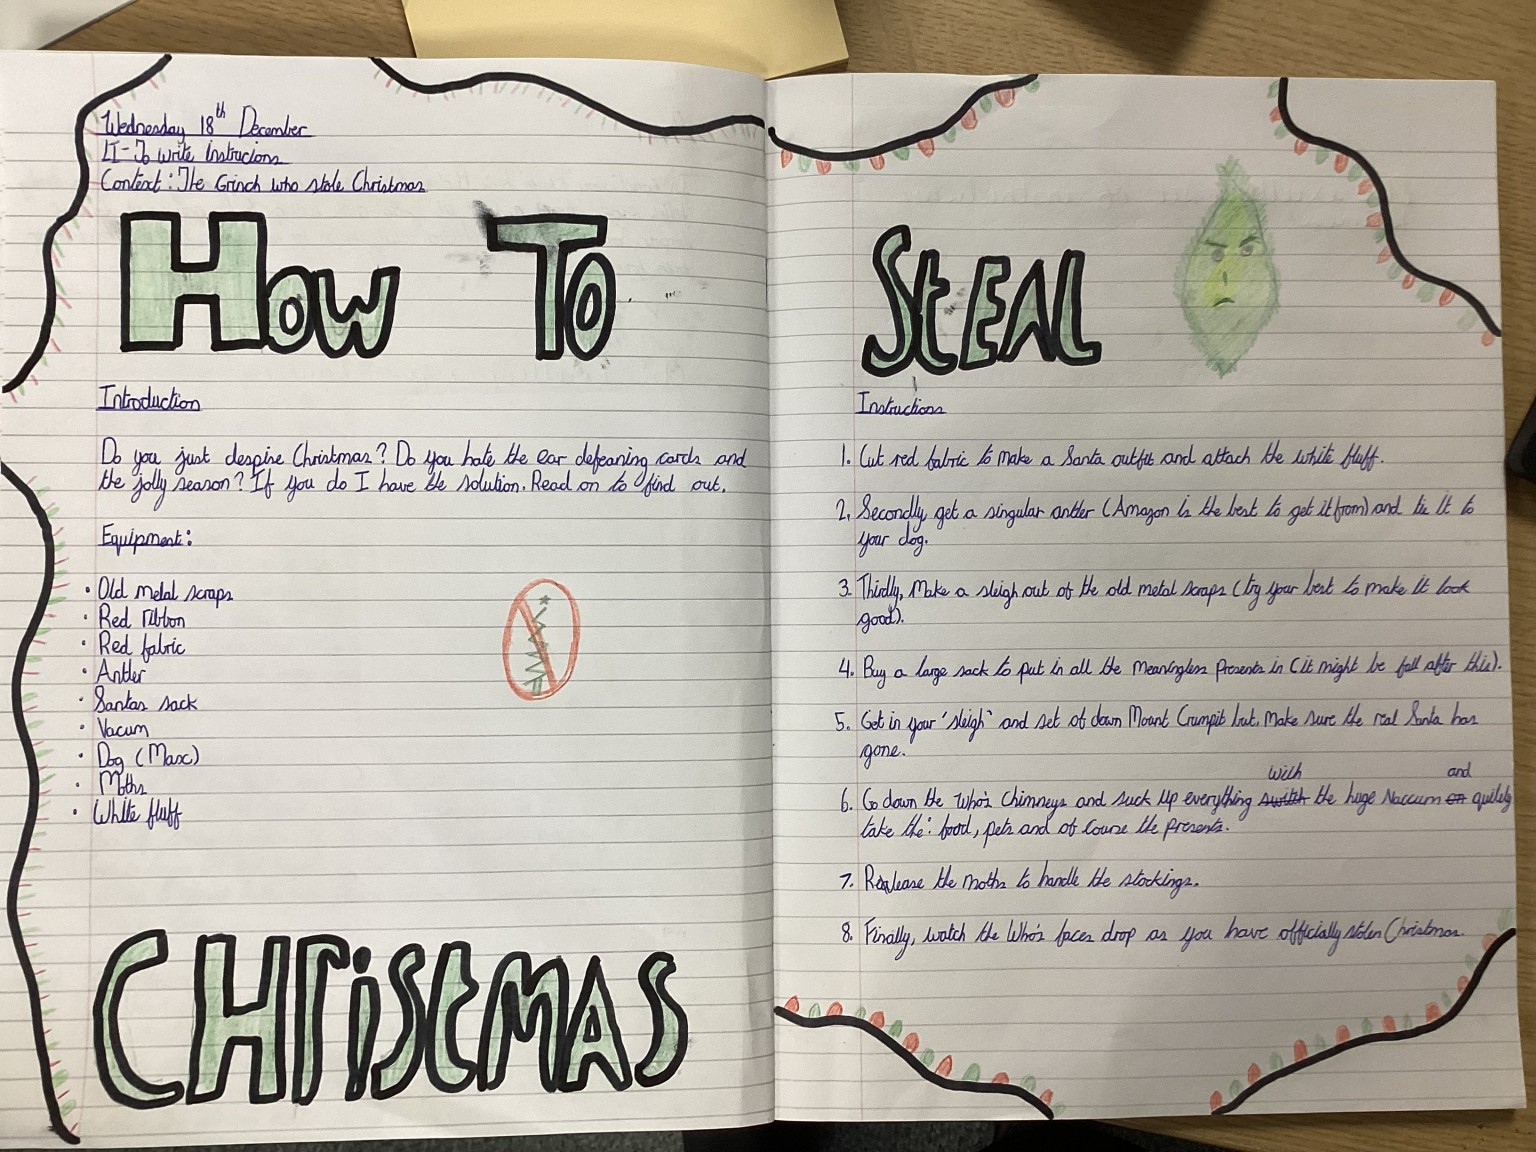 Wednesday 18th December
LI-To write Instrucions
Context: The Grinch who stole Christmas
How To
Introduction
Do you just despise Christmas? Do you hate the ear defeaning cards and
the jolly season? If you do I have the solution. Read on to find out.
Equipment:
• Old metal scraps
• Red ribbon
• Red fabric
• Antler
• Santas sack
• Vacum
• Dog (Max)
• Moths
• White fluff
CHristmas
Steal
Instructions
1. Cut red fabric to make a Santa outfit and attach the white fluff.
2. Secondly, get a singular antler (Amazon is the best to get it from) and tie it to
your dog.
3. Thirdly, Make a sleigh out of the old metal scraps (try your best to make it look
good).
4. Buy a large sack to put in all the meaningless presents in (it might be full after this).
5. Get in your 'sleigh' and set of down Mount Crumpit but, make sure the real Santa has
gone.
with and
6. Go down the Who's Chimneys and suck up everything switch the huge Naccum on quitely
take the: food, pets and of course the presents.
7. Realease the moths to handle the stockings.
8. Finally, watch the Who's faces drop as you have officially stolen Christmas.